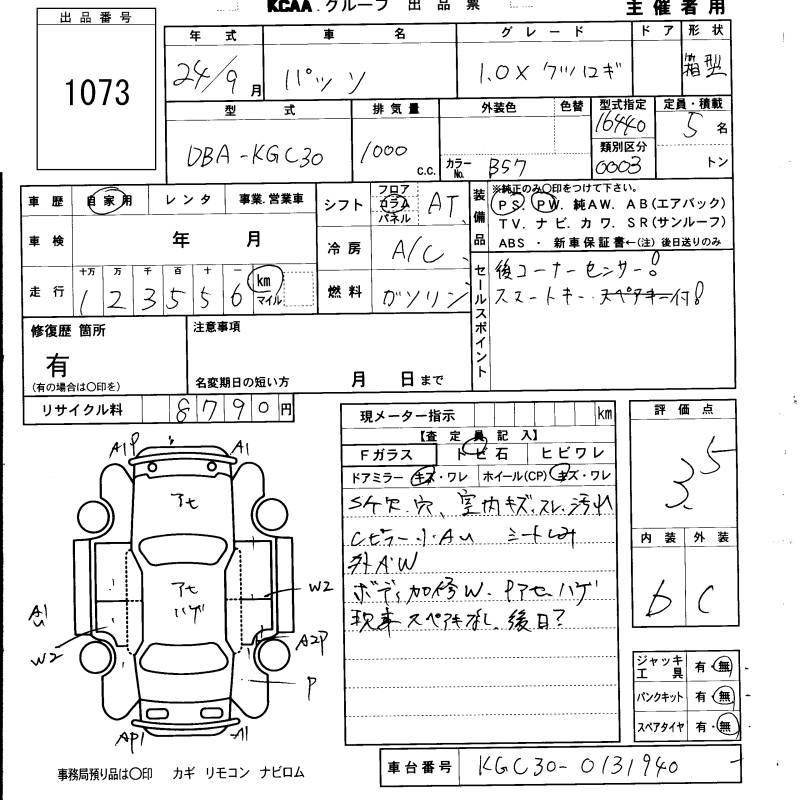 KCAA グループ 出品票
主催者用
出品番号
1073
年式 車名 グレード ドア 形状
24/9月 パッソ 1.0X クツロギ 箱型
型式 排気量 外装色 色替 型式指定 定員・積載
DBA-KGC30 1000 c.c. カラーNo. B57 16440 5名
類別区分
0003 トン
車歴 自家用 レンタ 事業.営業車
車検 年 月
走行 十万 万 千 百 十 一
1 2 3 5 5 6 km マイル
シフト フロア コラム パネル AT
冷房 A/C
燃料 ガソリン
装備品
※純正のみ○印をつけて下さい。
PS. PW. 純AW. AB(エアバック)
TV. ナビ. カワ. SR(サンルーフ)
ABS ・ 新車保証書←(注) 後日送りのみ
セールスポイント
後コーナーセンサー!
スマートキー スペアキー付!
修復歴 箇所
有
(有の場合は○印を)
注意事項
名変期日の短い方 月 日まで
リサイクル料 8790円
現メーター指示 km
【査定員記入】
Fガラス トビ石 ヒビワレ
ドアミラー キズ・ワレ ホイール(CP) キズ・ワレ
S/ケ欠.穴、室内キズ.スレ.汚れ
Cピラー小AU シートしみ
外AW
ボディ加修W. Pアセ.ハゲ
現車スペアキーなし. 後日?
評価点
3.5
内装 外装
b C
ジャッキ工具 有・無
パンクキット 有・無
スペアタイヤ 有・無
A1P A1
アセ
アセ
ハゲ
W2
A1
U
W2
A2P
P
AP1 A1
事務局預り品は○印 カギ リモコン ナビロム
車台番号 KGC30-0131940